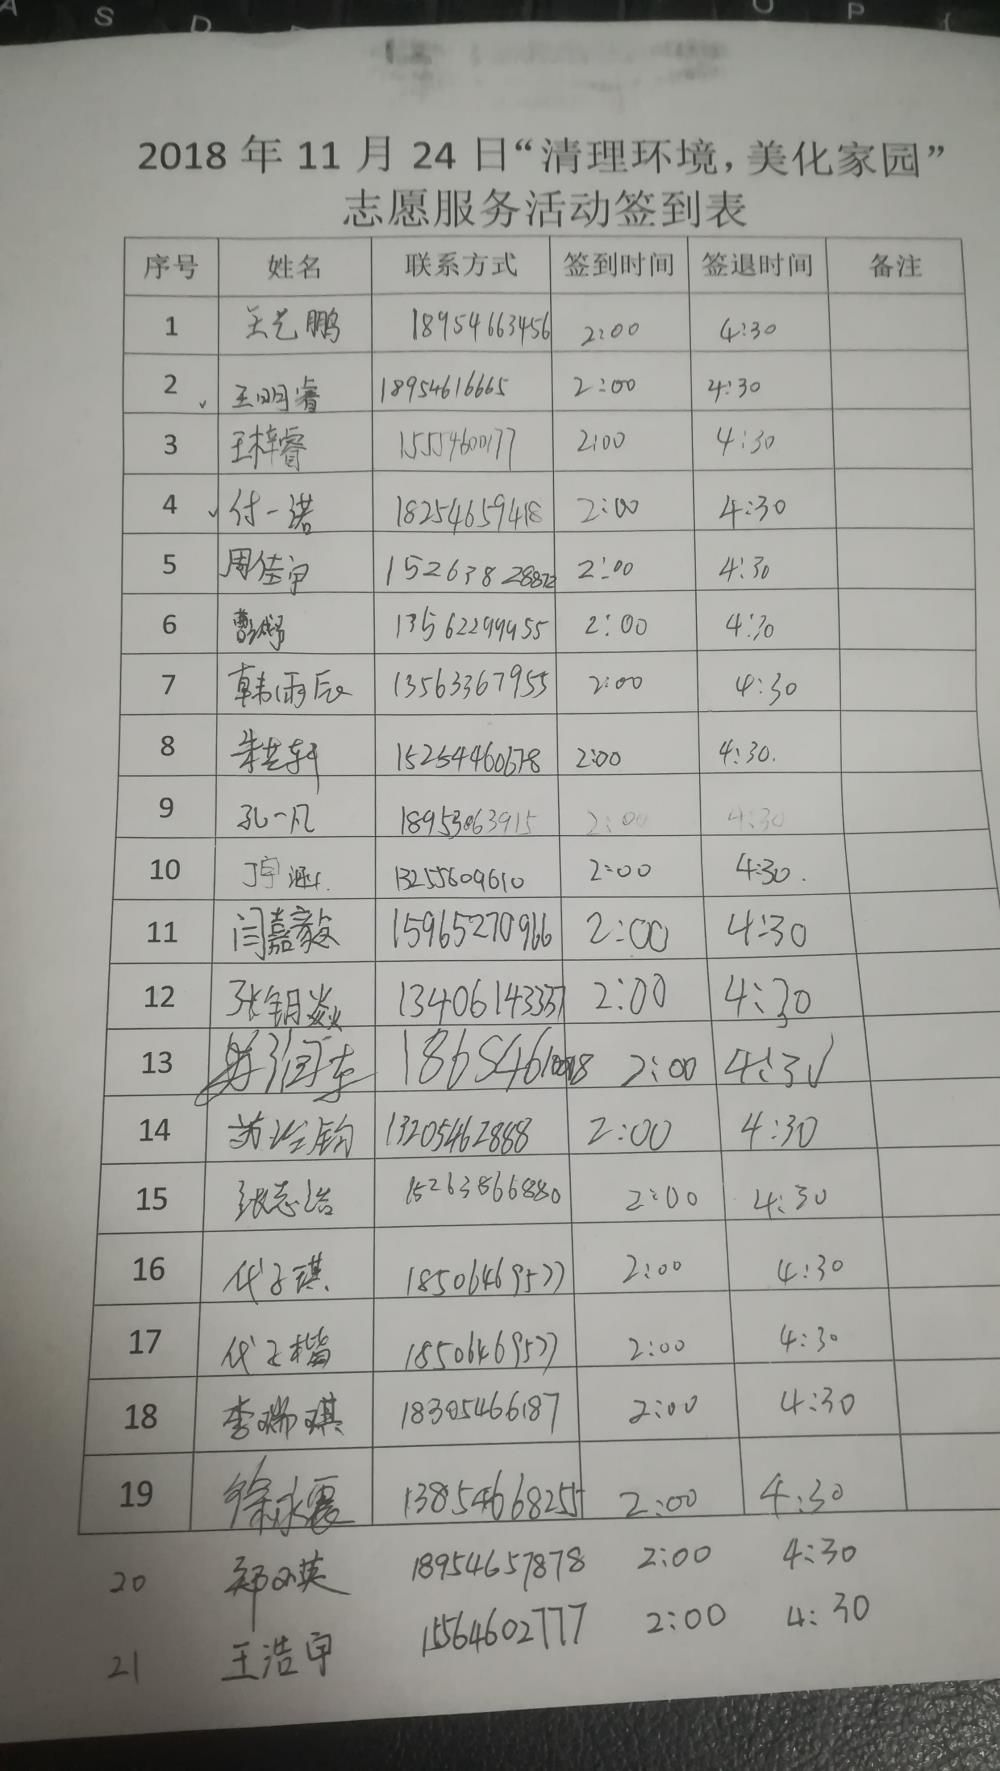 A S D O P
2018 年 11 月 24 日“清理环境，美化家园”
志愿服务活动签到表
序号 姓名 联系方式 签到时间 签退时间 备注
1 王艺鹏 18954663456 2:00 4:30
2 王明睿 18954616665 2:00 4:30
3 王梓睿 15554600177 2:00 4:30
4 付一诺 18254659418 2:00 4:30
5 周佳宇 15263828872 2:00 4:30
6 13562299955 2:00 4:30
7 韩雨辰 13563367955 2:00 4:30
8 朱艺轩 15254460678 2:00 4:30.
9 孔一凡 18953863915 2:00 4:30
10 丁宇涵 13255609610 2:00 4:30.
11 闫嘉毅 15965270966 2:00 4:30
12 张钥焱 13406143337 2:00 4:30
13 2:00 4:30
14 13205462888 2:00 4:30
15 张志浩 15263866880 2:00 4:30
16 代子琪 18506469577 2:00 4:30
17 代子楷 18506469577 2:00 4:30
18 李瑞琪 18305466187 2:00 4:30
19 徐永震 13854668255 2:00 4:30
20 郑英 18954657878 2:00 4:30
21 王浩宇 15564602777 2:00 4:30